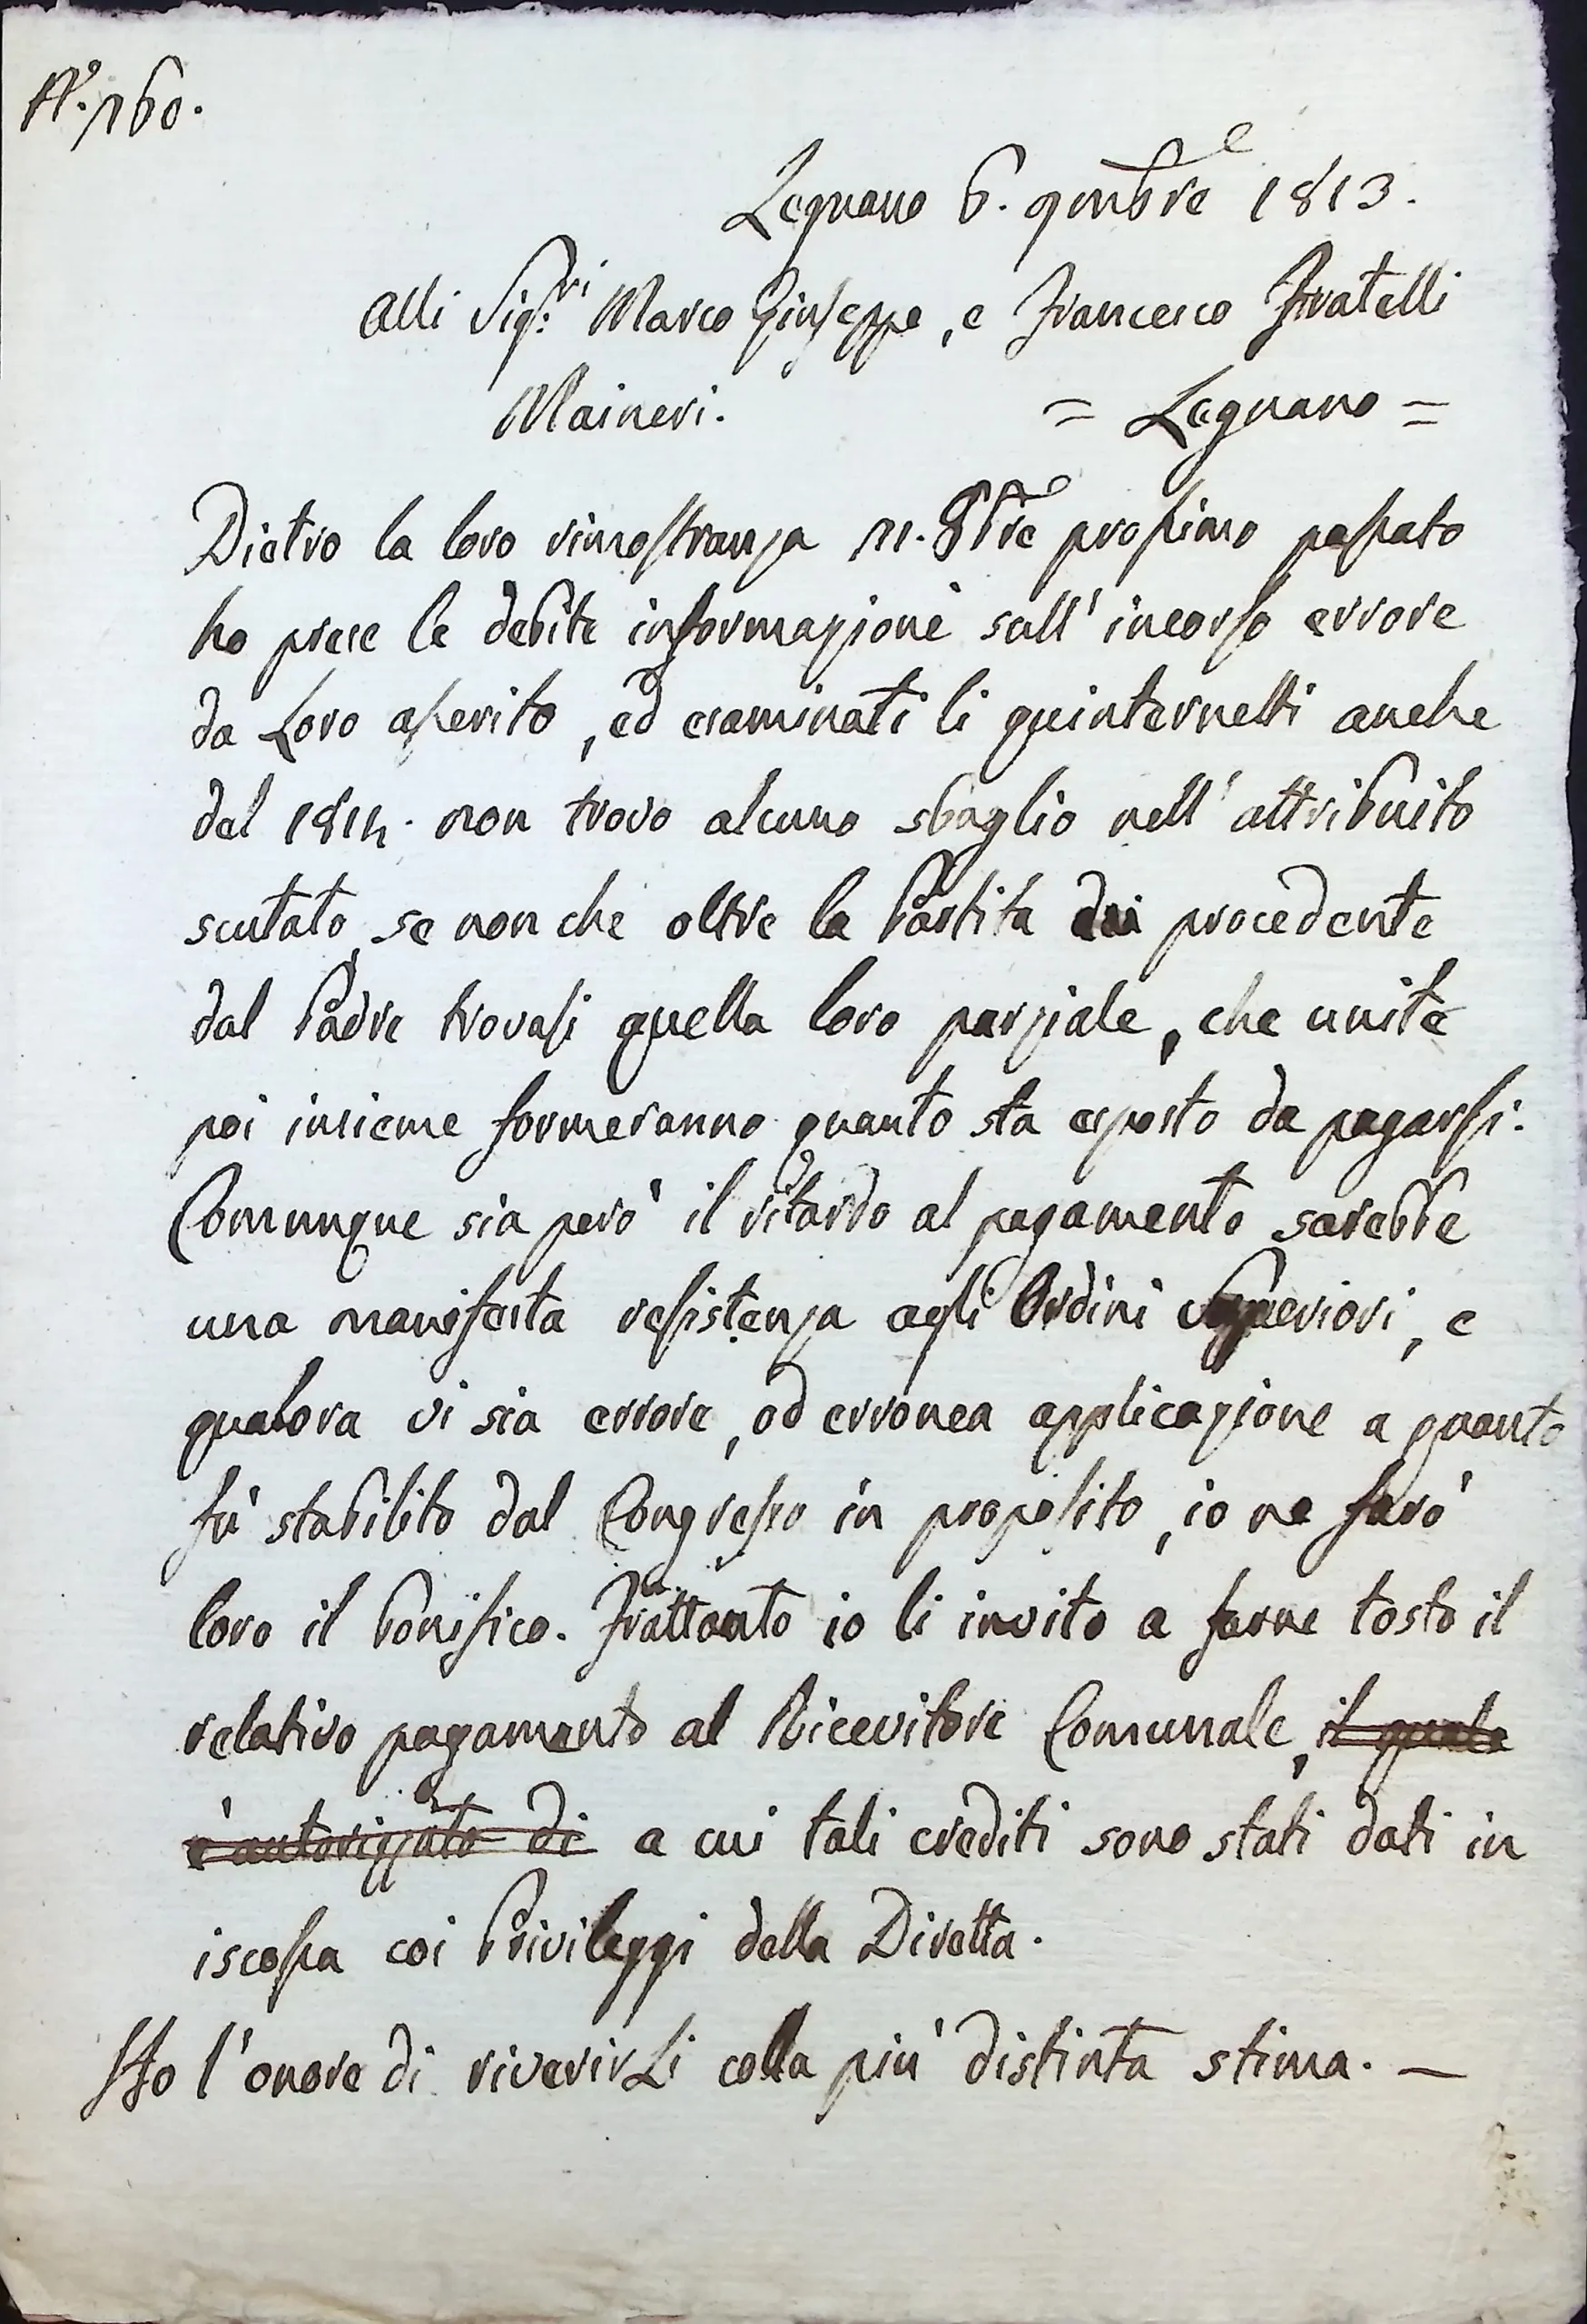 N.º 160.
Legnano 6. 9mbre 1813.
Alli Sig.ri Marco Giuseppe, e Francesco Fratelli
Maineri. = Legnano =
Dietro la loro rimostranza 11. 8bre prossimo passato
ho prese le debite informazioni sull' incorso errore
da Loro asserito, ed esaminati li quinternetti anche
del 1811. non trovo alcuno sbaglio nell' attribuito
scutato, se non che oltre la Partita procedente
dal Padre trovasi quella loro parziale, che unite
poi insieme formeranno quanto sta esposto da pagarsi.
Comunque sia però il ritardo al pagamento sarebbe
una manifesta resistenza agli Ordini Superiori, e
qualora vi sia errore, od erronea applicazione a quanto
fù stabilito dal Congresso in proposito, io ne farò
loro il bonifico. Frattanto io li invito a farne tosto il
relativo pagamento al Ricevitore Comunale, il quale
è autorizzato di a cui tali crediti sono stati dati in
iscossa coi Privileggi della Diretta.
Ho l'onore di riverirLi colla più distinta stima. —